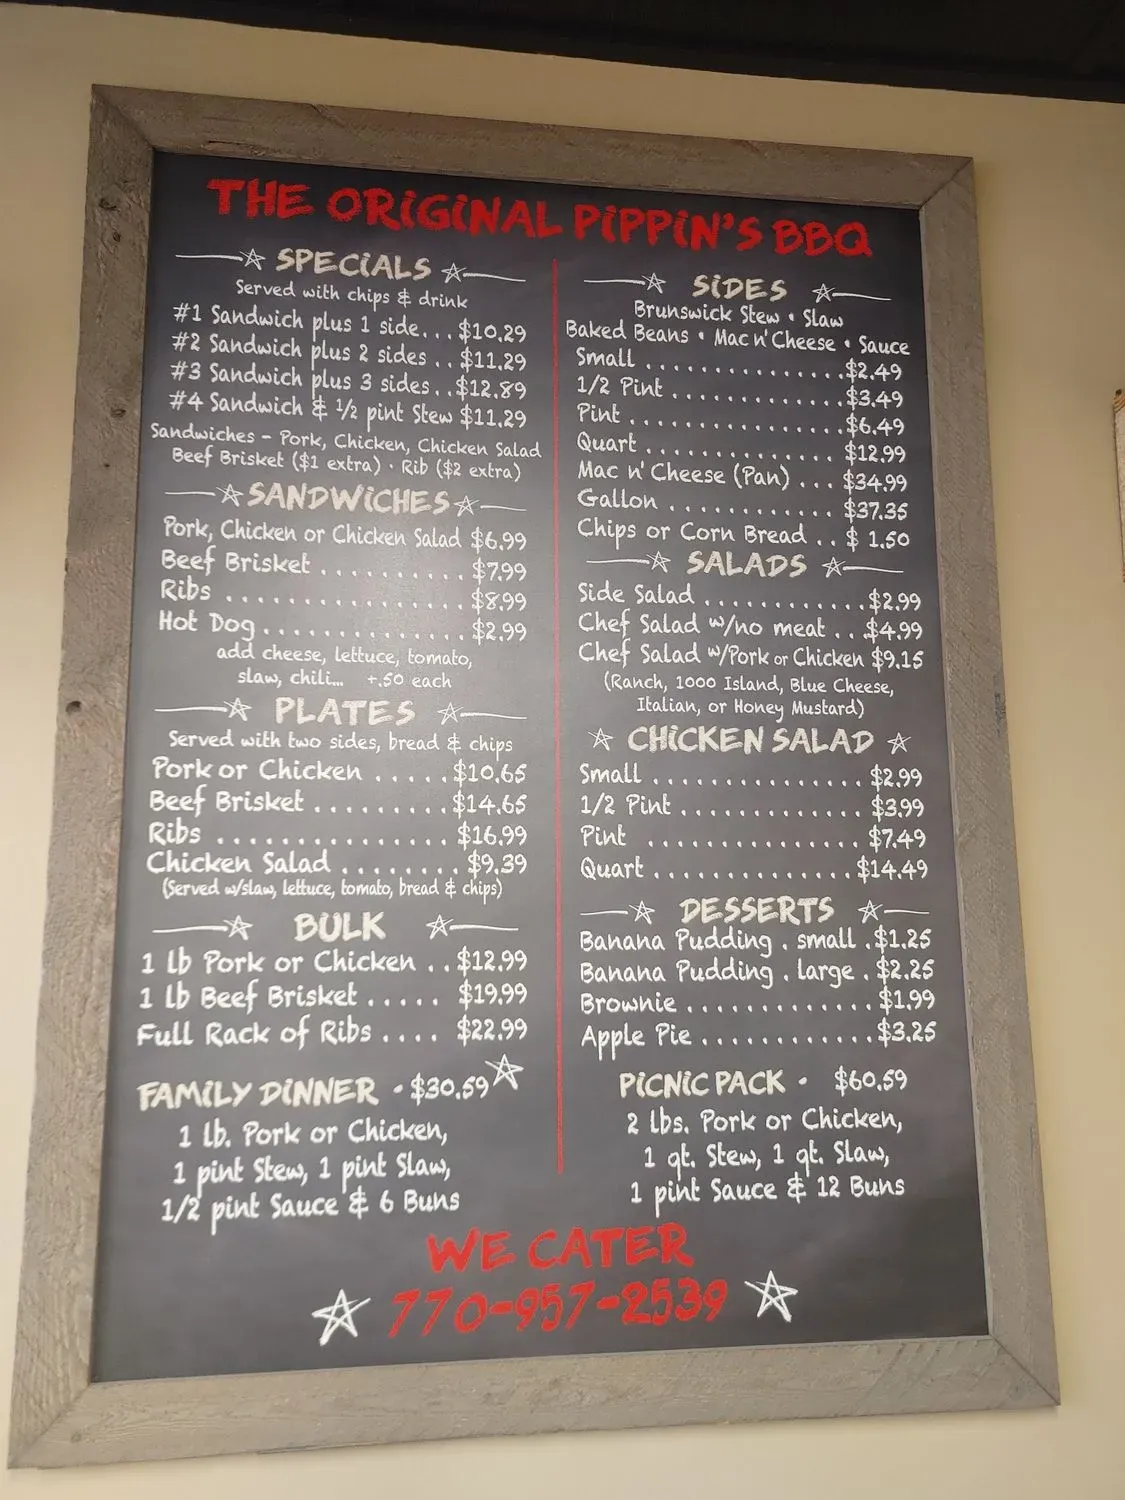 THE ORIGINAL PIPPIN'S BBQ
SPECIALS
Served with chips & drink
#1 Sandwich plus 1 side... $10.29
#2 Sandwich plus 2 sides .. $11.29
#3 Sandwich plus 3 sides.. $12.89
#4 Sandwich & 1/2 pint Stew $11.29
Sandwiches - Pork, Chicken, Chicken Salad
Beef Brisket ($1 extra) · Rib ($2 extra)
SANDWICHES
Pork, Chicken or Chicken Salad $6.99
Beef Brisket .......... $7.99
Ribs ................ $8.99
Hot Dog.............. $2.99
add cheese, lettuce, tomato,
slaw, chili... +.50 each
PLATES
Served with two sides, bread & chips
Pork or Chicken ..... $10.65
Beef Brisket ......... $14.65
Ribs ............... $16.99
Chicken Salad ........ $9.39
(Served w/slaw, lettuce, tomato, bread & chips)
BULK
1 lb Pork or Chicken .. $12.99
1 lb Beef Brisket ..... $19.99
Full Rack of Ribs .... $22.99
FAMILY DINNER · $30.59
1 lb. Pork or Chicken,
1 pint Stew, 1 pint Slaw,
1/2 pint Sauce & 6 Buns
SIDES
Brunswick Stew • Slaw
Baked Beans • Mac n' Cheese • Sauce
Small ............... $2.49
1/2 Pint ............. $3.49
Pint ................ $6.49
Quart .............. $12.99
Mac n' Cheese (Pan) ... $34.99
Gallon ............ $37.35
Chips or Corn Bread .. $ 1.50
SALADS
Side Salad ............ $2.99
Chef Salad w/no meat .. $4.99
Chef Salad w/Pork or Chicken $9.15
(Ranch, 1000 Island, Blue Cheese,
Italian, or Honey Mustard)
CHICKEN SALAD
Small ............... $2.99
1/2 Pint ............. $3.99
Pint ............... $7.49
Quart .............. $14.49
DESSERTS
Banana Pudding . small . $1.25
Banana Pudding . large . $2.25
Brownie ............. $1.99
Apple Pie ............ $3.25
PICNIC PACK · $60.59
2 lbs. Pork or Chicken,
1 qt. Stew, 1 qt. Slaw,
1 pint Sauce & 12 Buns
WE CATER
770-957-2539